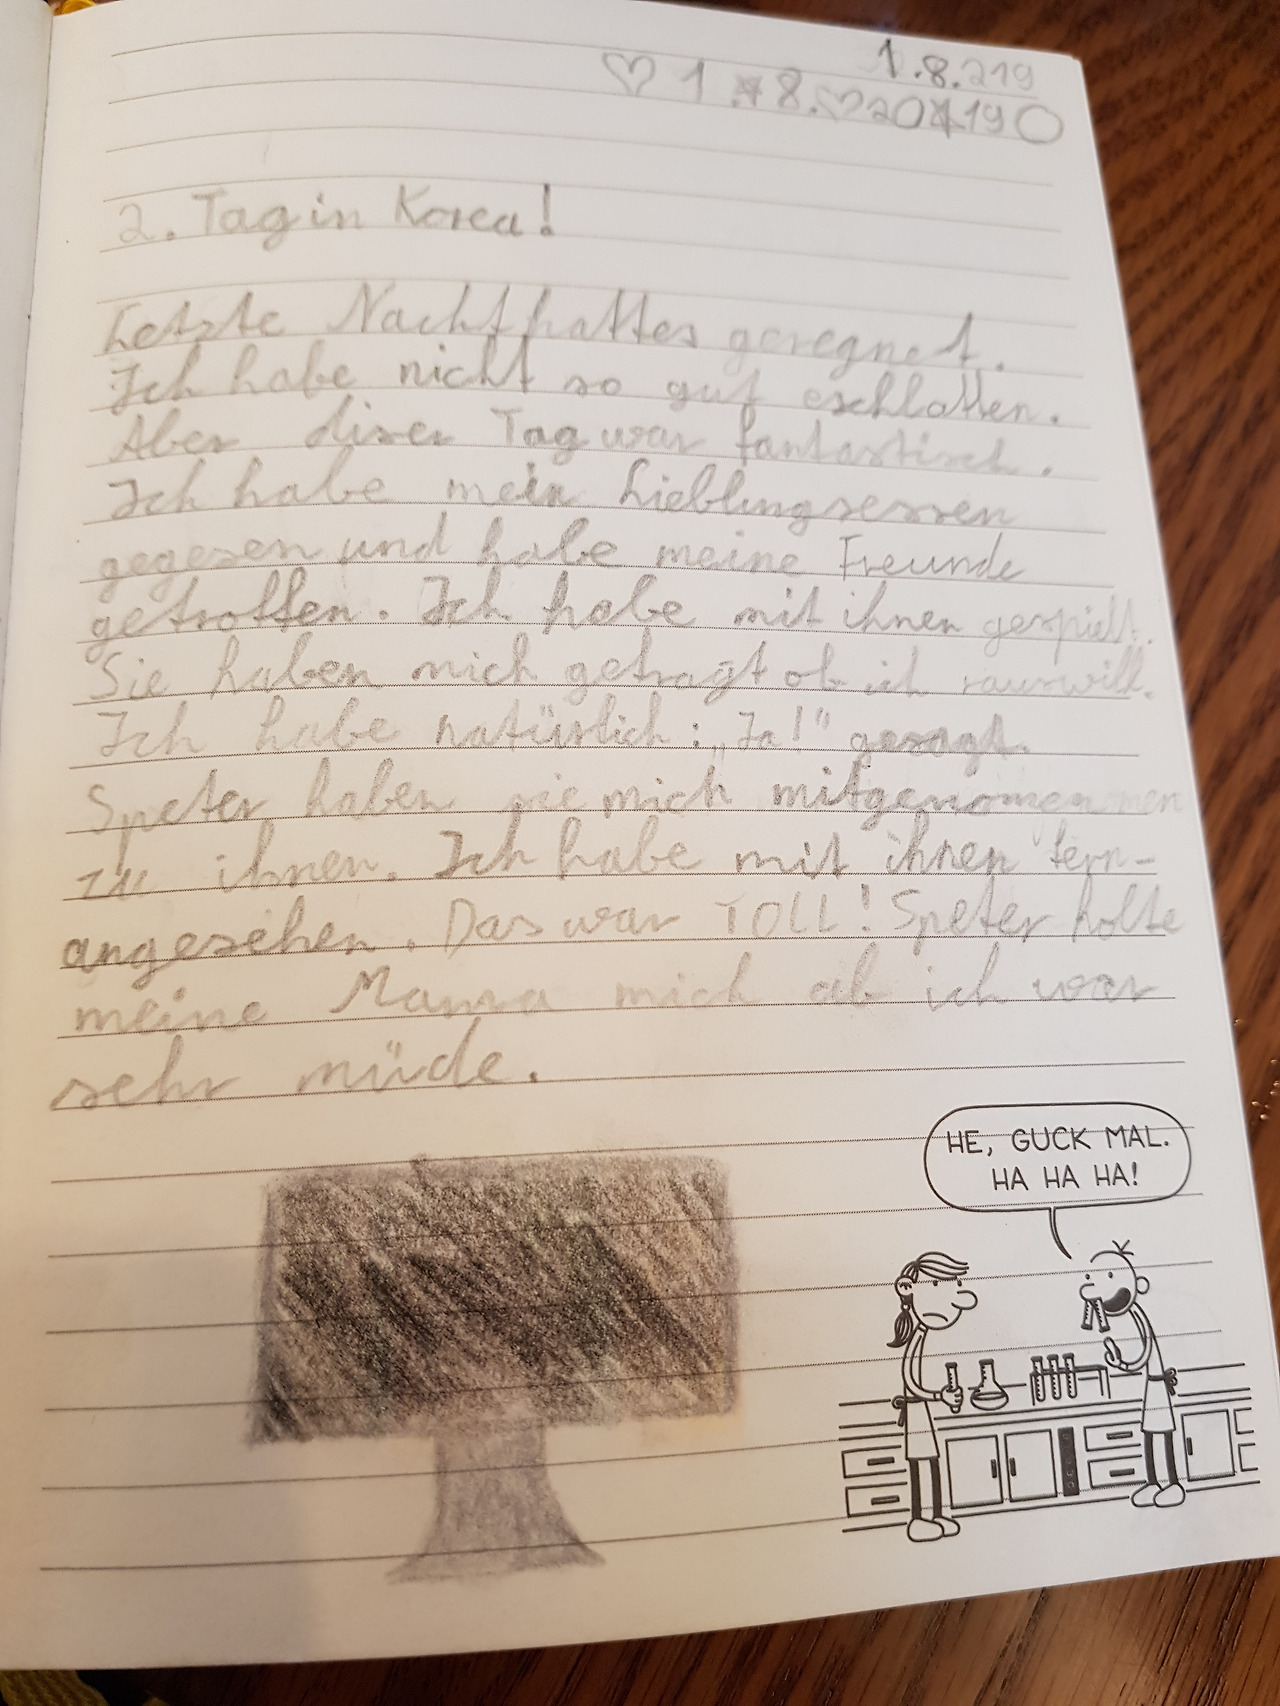 1.8.219
♡ 1 ☆8.♡20☆19○
2. Tag in Korea!
Letzte Nacht hattes geregnet.
Ich habe nicht so gut eschlaffen.
Aber diser Tag war fantastisch.
Ich habe mein Lieblingsessen
gegesen und habe meine Freunde
getroffen. Ich habe mit ihnen gespielt.
Sie haben mich gefragt ob ich raus will.
Ich habe natürlich: „Ja!" gesagt.
Speter haben sie mich mitgenomen men
zu ihnen. Ich habe mit ihnen fern-
angesehen. Das war TOLL! Speter holte
meine Mama mich ab ich war
sehr müde.
HE, GUCK MAL.
HA HA HA!